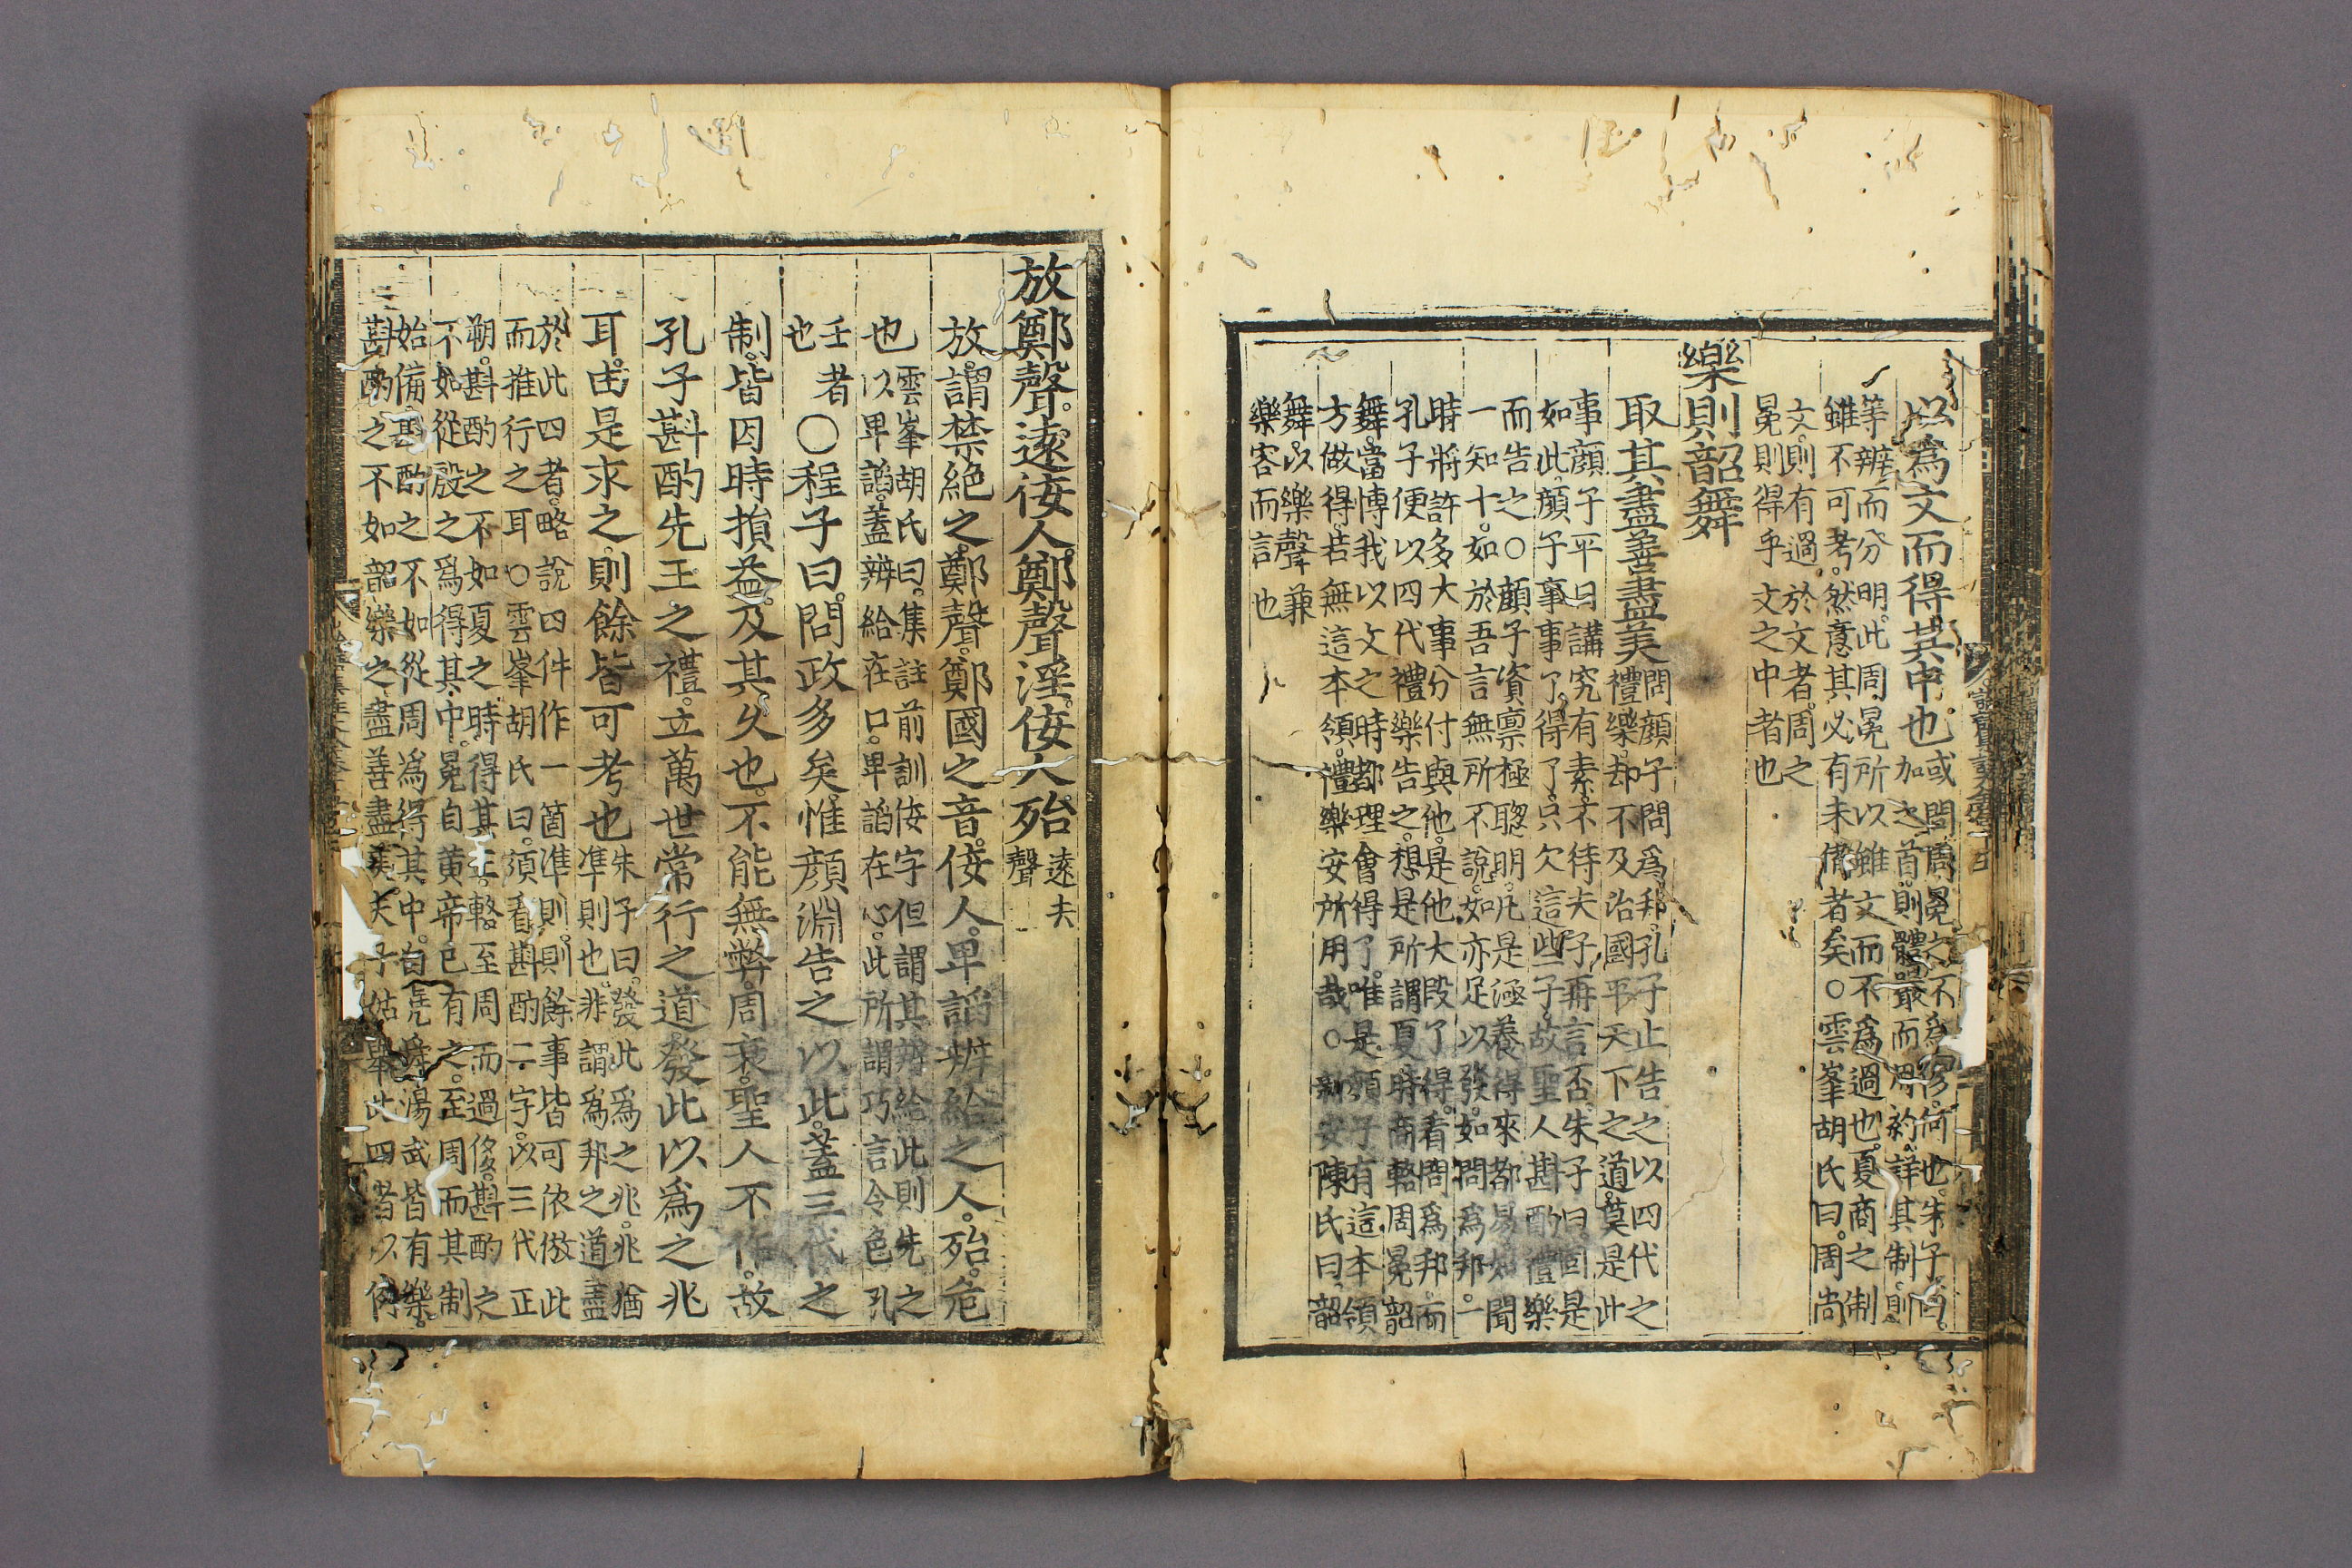 以爲文而得其中也或問周冕之不爲侈何也朱子曰
加之首則體嚴而用約詳其制則
等辨而分明此周冕所以雖文而不爲過也夏商之制
雖不可考然意其必有未備者矣○雲峯胡氏曰周尚
文則有過於文者周之
冕則得乎文之中者也
樂則韶舞
取其盡善盡美問顏子問爲邦孔子止告之以四代之
禮樂却不及治國平天下之道莫是此
事顏子平日講究有素不待夫子再言否朱子曰固是
如此顏子事事了得了只欠這些子故聖人斟酌禮樂
而告之○顏子資禀極聦明凡是涵養得來都易如聞
一知十如於吾言無所不說如亦足以發如問爲邦一
時將許多大事分付與他是他大段了得看問爲邦而
孔子便以四代禮樂告之想是所謂夏時商輅周冕韶
舞當博我以文之時都理會得了唯是顏子有這本領
方做得若無這本領禮樂安所用哉○新安陳氏曰韶
舞以樂聲兼
樂容而言也
放鄭聲遠佞人鄭聲淫佞人殆遠夫
聲
放謂禁絕之鄭聲鄭國之音佞人卑諂辨給之人殆危
也雲峯胡氏曰集註前訓佞字但謂其辨給此則先之
以卑諂蓋辨給在口卑諂在心此所謂巧言令色孔
壬者
也○程子曰問政多矣惟顏淵告之以此蓋三代之
制皆因時損益及其久也不能無弊周衰聖人不作故
孔子斟酌先王之禮立萬世常行之道發此以爲之兆
耳由是求之則餘皆可考也朱子曰發此爲之兆兆猶
準則也非謂爲邦之道盡
於此四者略說四件作一箇準則則餘事皆可依倣此
而推行之耳○雲峯胡氏曰須看斟酌二字以三代正
朔斟酌之不如夏之時得其正輅至周而過侈斟酌之
不如從殷之爲得其中冕自黃帝已有之至周而其制
始備斟酌之不如從周爲得其中自堯舜湯武皆有樂
斟酌之不如韶樂之盡善盡美夫子姑舉此四者以例